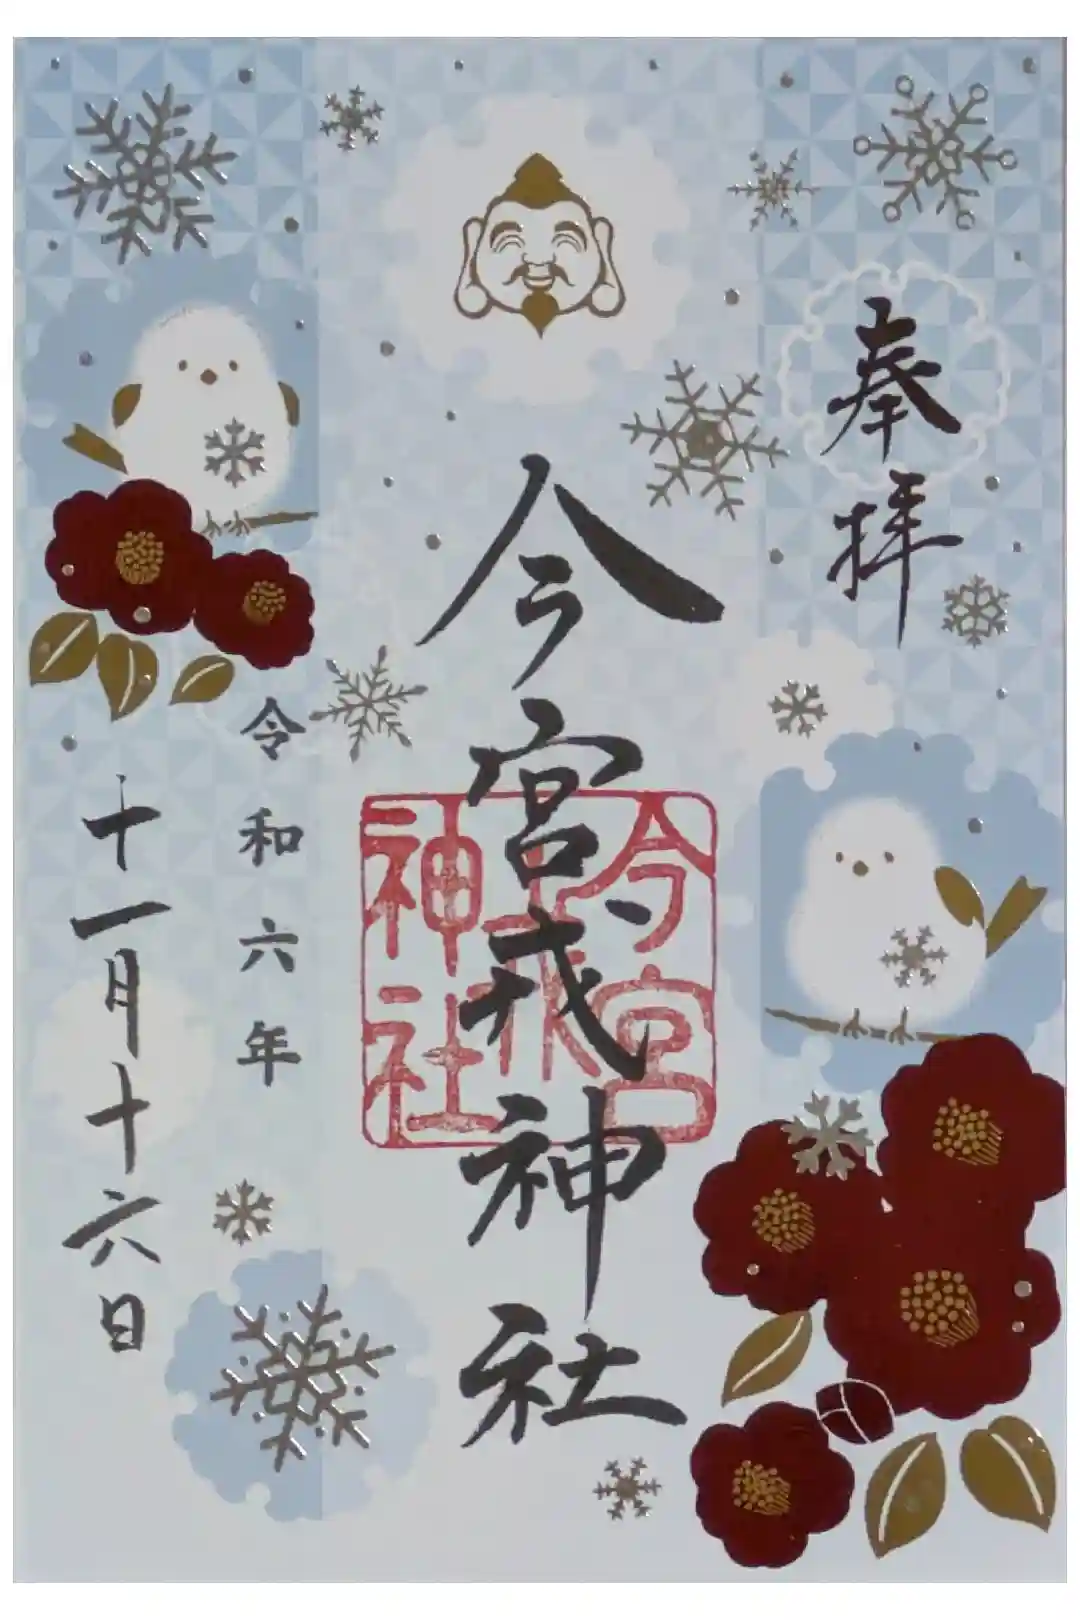 奉拝
今宮戎神社
今宮
戎
神社
令和六年
十一月十六日